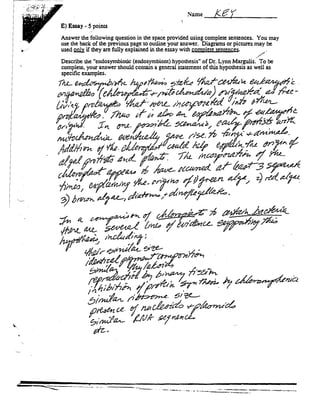 Name KEY
E) Essay - 5 points
Answer the following question in the space provided using complete sentences. You may
use the back of the previous page to outline your answer. Diagrams or pictures may be
used only if they are fully explained in the essay with complete sentences.
Describe the "endosymbiotic (endosymbiont) hypothesis" of Dr. Lynn Margulis. To be
complete, your answer should contain a general statement of this hypothesis as well as
specific examples.
The endosymbiotic hypothesis states that certain eukaryotic
organelles (chloroplasts + mitochondria) originated as free-
living prokaryotes that were incorporated into other
prokaryotes. Thus it is also an explanation of eukaryotic
origins. In one possible scenario, early protists with
mitochondria eventually gave rise to fungi + animals.
Addition of the chloroplast could help explain the origin of
algal protists and plants. The incorporation of the
chloroplast appears to have occurred at least 3 separate
times, explaining the origins of 1) green algae, 2) red algae
3) brown algae, diatoms + dinoflagellates.
In a comparison of chloroplasts to certain bacteria
there are several lines of evidence supporting this
hypothesis, including:
their similar size
identical pigment composition
similar thylakoids
reproduction by binary fission
inhibition of protein synthesis by chloramphenicol
similar ribosome size
presence of nucleoids + plasmids
similar RNA sequence
etc.